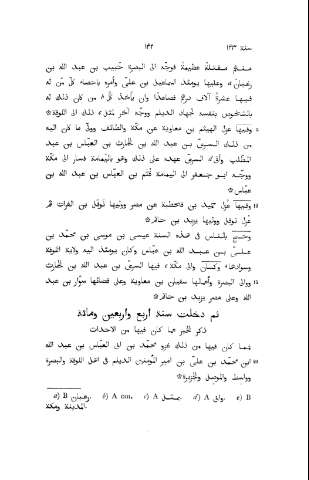 سنة ١٤٣ ١٤٢
منهم مقتلة عظيمة فوجّه الى البصرة حبيب بن عبد الله بن
وعليها يومئذ اسماعيل بن علىّ وأمره باحصاء كلّ من له
فيها عشرة آلاف درهم فصاعدًا وان يأخذ كلّ من كان ذلك له
بالشخوص بنفسه لجهاد الديلم ووجّه آخر لمثل ذلك الى الكوفة
٥ وفيها عزل الهيثم بن معاوية عن مكّة والطائف وولى ما كان اليه
من ذلك السرىّ بن عبد الله بن الحارث بن العبّاس بن عبد
المطّلب وأتى السرىّ عهده على ذلك وهو باليمامة فسار الى مكّة
ووجّه ابو جعفر الى اليمامة قثم بن العبّاس بن عبد الله بن
عبّاس
١٠ وفيها عزل حميد بن قحطبة عن مصر ووليها نوفل بن الفرات ثم
عزل نوفل ووليها يزيد بن حاتم
وحجّ بالناس فى هذه السنة عيسى بن موسى بن محمد بن
علىّ بن عبد الله بن عبّاس وكان يومئذ اليه ولاية الكوفة
وسوادها وكان والى مكّة فيها السرىّ بن عبد الله بن الحارث
١٥ ووالى البصرة وأعمالها سفيان بن معاوية وعلى قضائها سوّار بن عبد
الله وعلى مصر يزيد بن حاتم
ثم دخلت سنة اربع واربعين ومائة
ذكر الخبر عما كان فيها من الاحداث
فمما كان فيها من ذلك غزو محمد بن ابى العبّاس بن عبد الله
٢٠ ابن محمد بن علىّ بن امير المؤمنين الديلم فى اهل الكوفة والبصرة
وواسط والموصل والجزيرة
a) B b) A om. c) A d) A والى. e) B
المدينة ومكة.